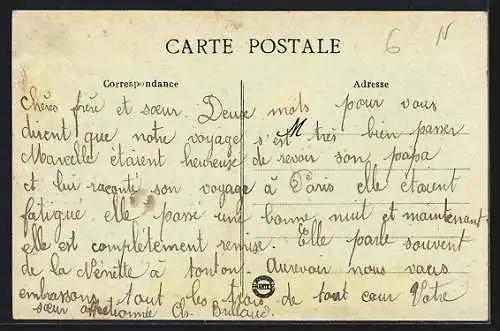 6 N
CARTE POSTALE
Correspondance
Adresse
Chères frère et sœur. Deux mots pour vous
dirent que notre voyage s'est très bien passer
M
Marcelle étaient heureuse de revoir son papa
et lui raconté son voyage à Paris elle étaient
fatigué elle passé une bonne nuit et maintenant
elle est complètement remise. Elle parle souvent
de la Nénette à tonton. Aurevoir nous vous
embrassons tout les trois de tout cœur Votre
sœur affectionnée